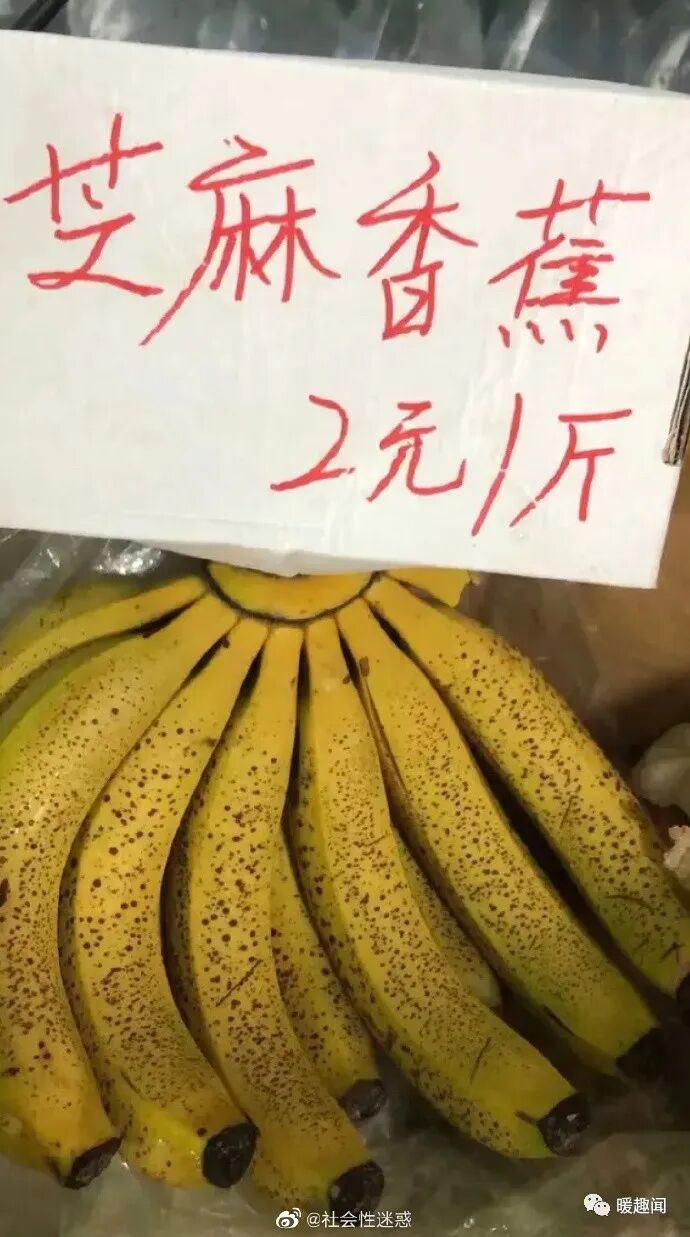 芝麻香蕉
2元/斤
暖趣闻
@社会性迷惑